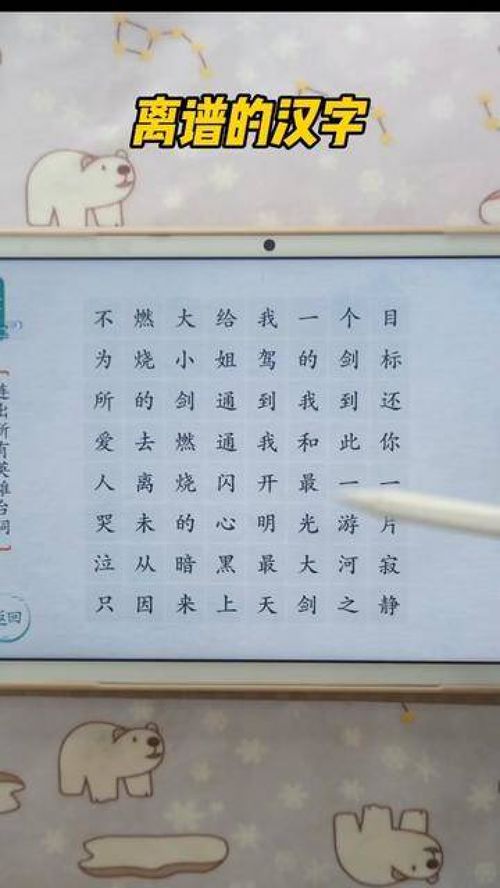 离谱的汉字
不燃大给我一个目
为烧小姐驾的剑标
所的剑通到我到还
爱去燃通我和此你
人离烧闪开最一一
哭未的心明光游片
泣从暗黑最大河寂
只因来上天剑之静
连出所有英雄台词
返回